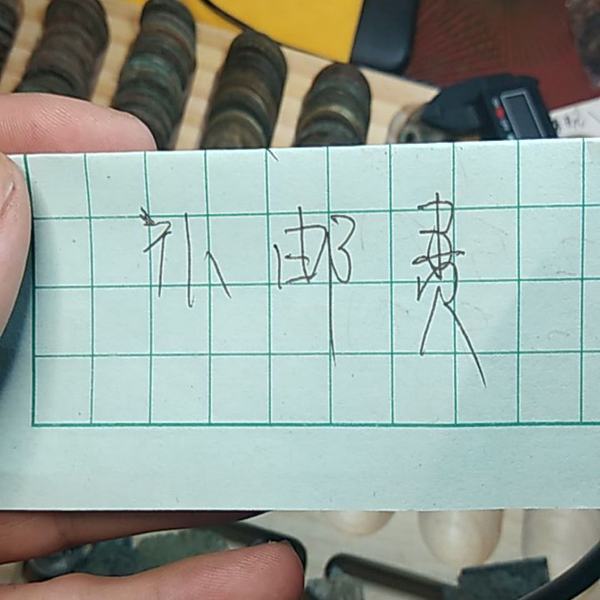 补邮费